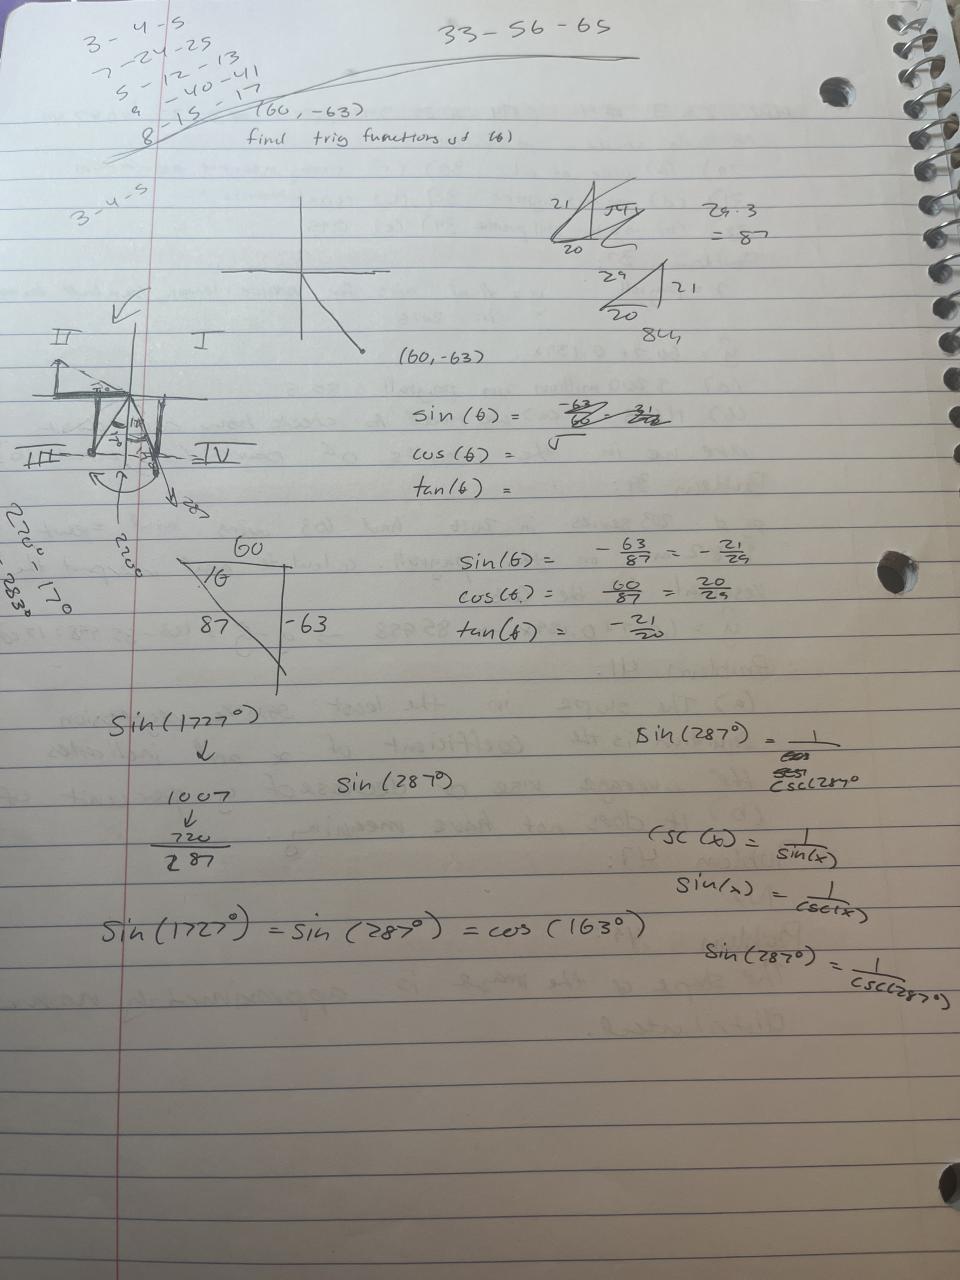 3-4-5
7-24-25
5-12-13
9-40-41
8-15-17
33-56-65
(60, -63)
find trig functions of (θ)
3-4-5
21
20
29·3
= 87
29
21
20
841
II
I
III
IV
(60,-63)
sin(θ) =
cos(θ) =
tan(θ) =
287
220°
270° - 17°
60
θ
87
-63
sin(θ) = -63/87 = -21/29
cos(θ) = 60/87 = 20/29
tan(θ) = -21/20
sin(1727°)
↓
1007
↓
720
287
sin(287°)
sin(287°) = 1/csc(287°
csc(x) = 1/sin(x)
sin(x) = 1/csc(x)
sin(1727°) = sin(287°) = cos(163°)
sin(287°) = 1/csc(287°)